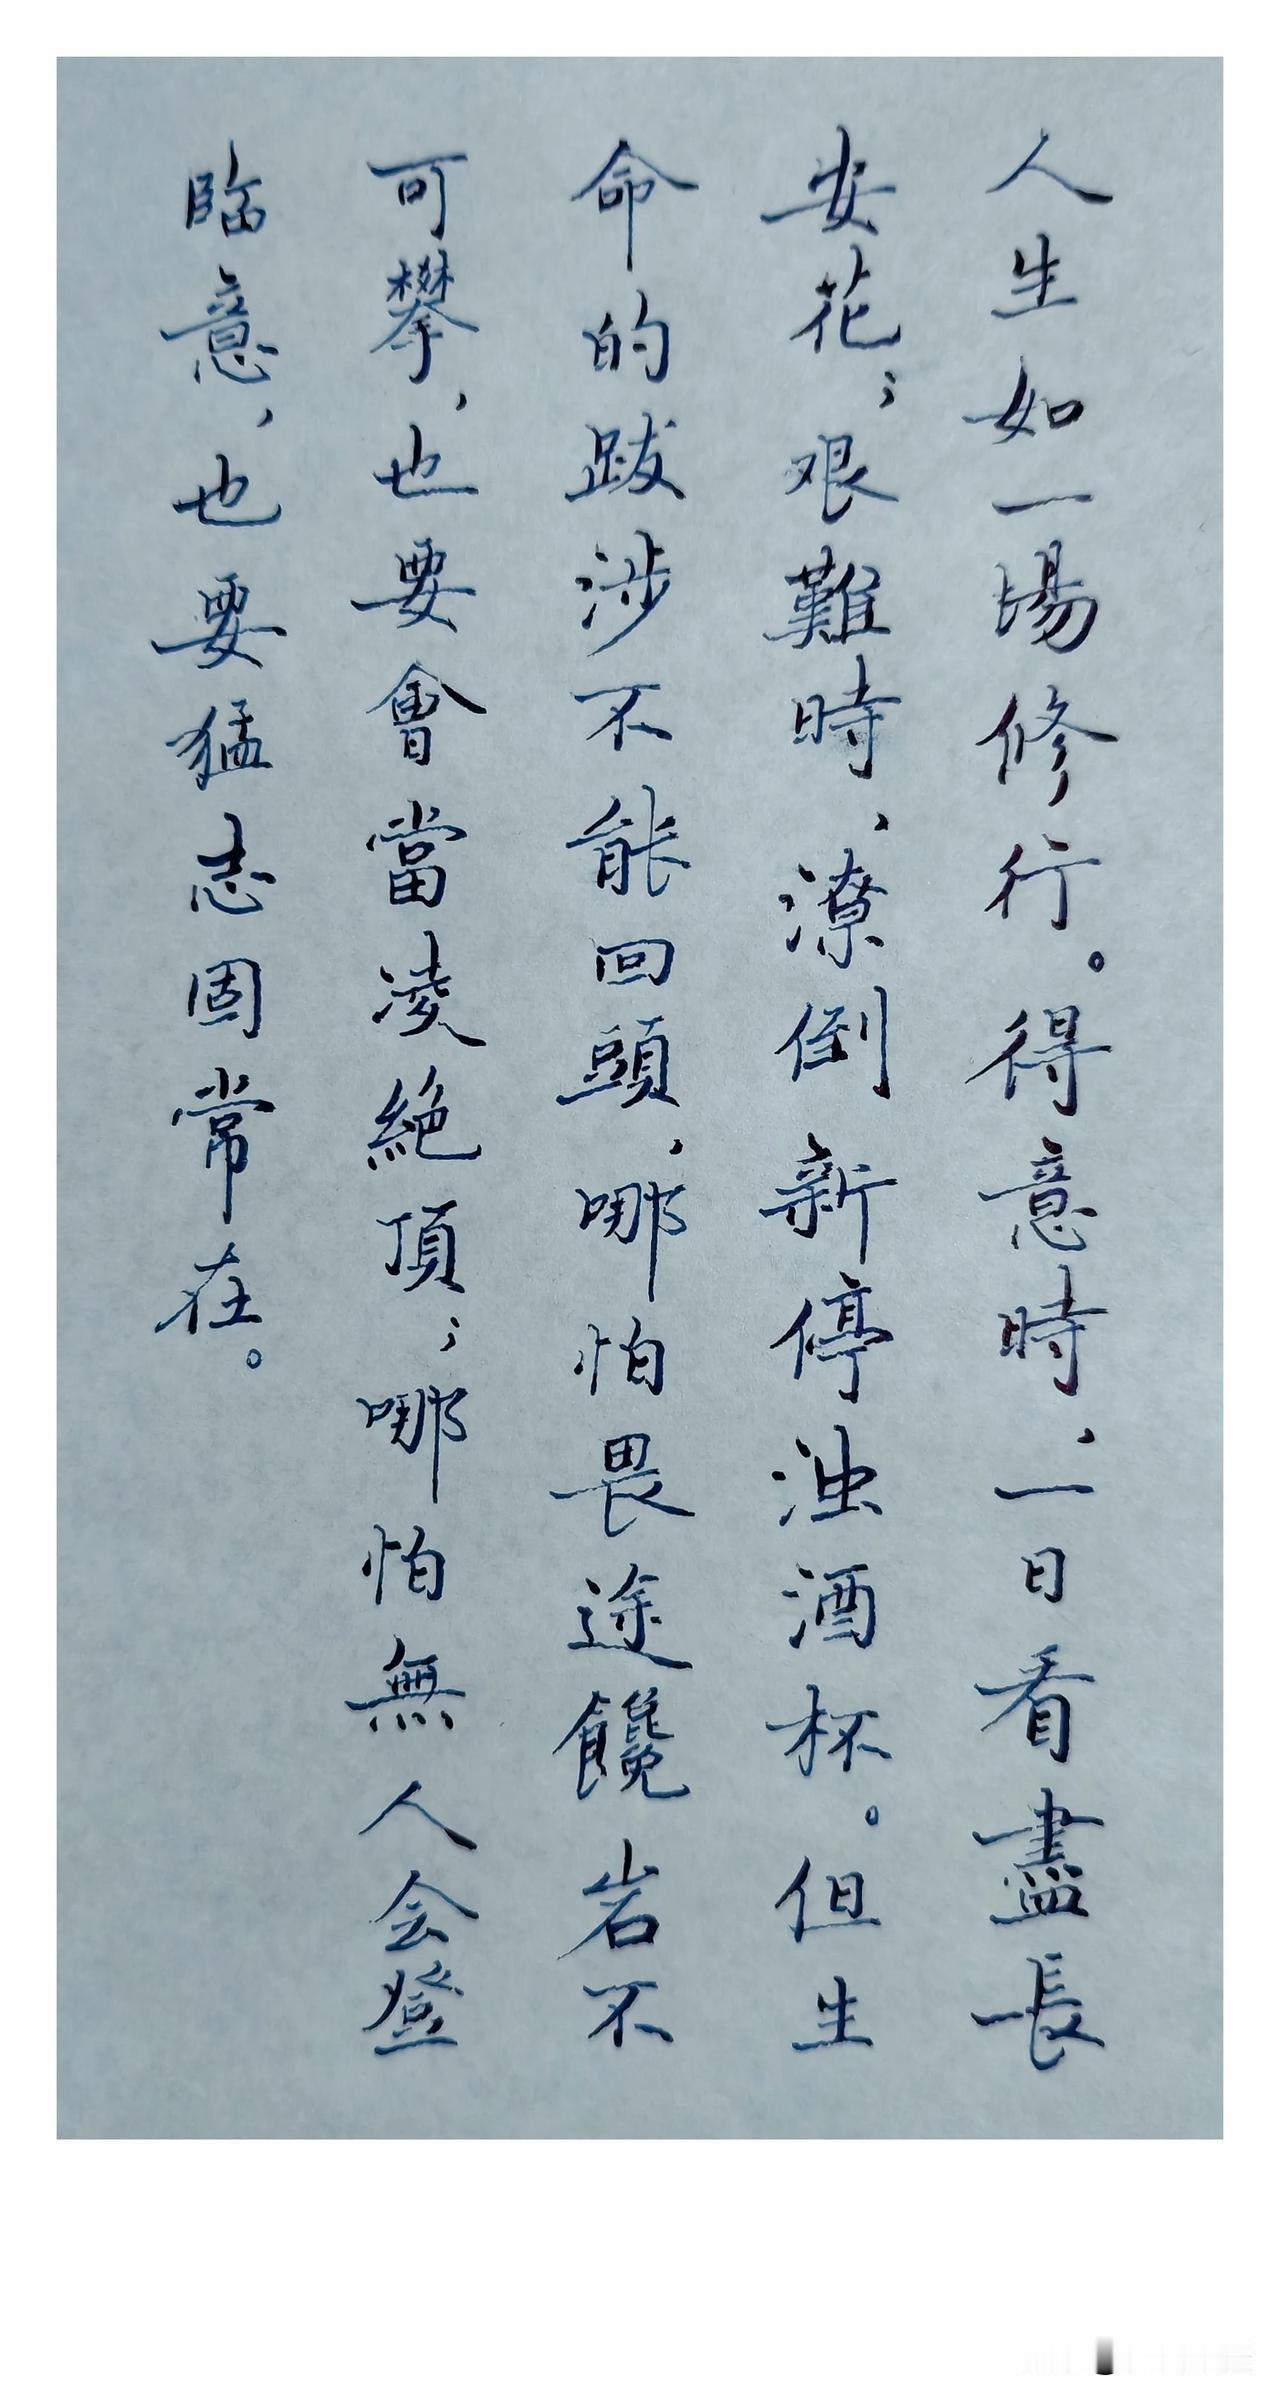 人生如一場修行。得意時、一日看盡長
安花；艰難時、潦倒新停浊酒杯。但生
命的跋涉不能回頭、哪怕畏途饞岩不
可攀，也要會當凌絕頂；哪怕無人会登
臨意，也要猛志固常在。